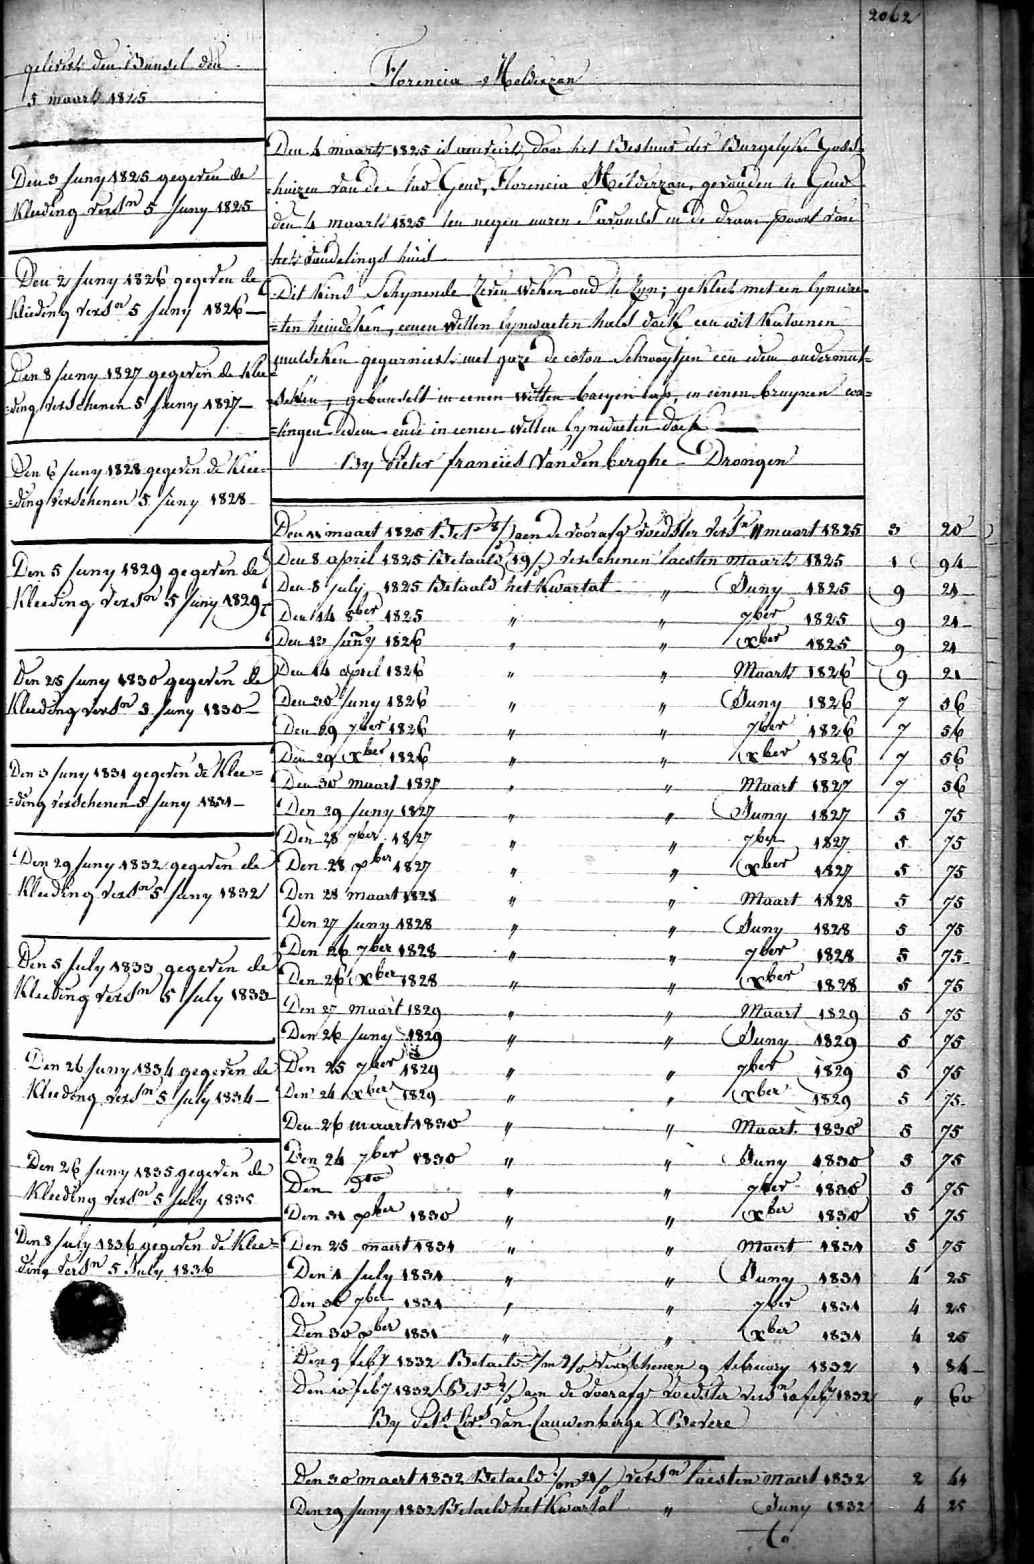 2062
gelivert den Bunsel den
5 maart 1825
Den 3 Juny 1825 gegeven de
Kleeding versn 5 Juny 1825
Den 2 Juny 1826 gegeven de
Kleeding versn 5 Juny 1826
Den 8 Juny 1827 gegeven de Klee=
=ding verschenen 5 Juny 1827
Den 6 Juny 1828 gegeven de Klee=
=ding verschenen 5 Juny 1828
Den 5 Juny 1829 gegeven de
Kleeding versn 5 Juny 1829
Den 25 Juny 1830 gegeven de
Kleeding versn 5 Juny 1830
Den 3 Juny 1831 gegeven de Klee=
=ding verschenen 5 Juny 1831
Den 29 Juny 1832 gegeven de
Kleeding versn 5 Juny 1832
Den 5 July 1833 gegeven de
Kleeding versn 5 July 1833
Den 26 Juny 1834 gegeven de
Kleeding versn 5 July 1834
Den 26 Juny 1835 gegeven de
Kleeding versn 5 July 1835
Den 8 July 1836 gegeven de Klee=
ding versn 5 July 1836
Florencia Melderzan
Den 4 maart 1825 is door het Bestuur der Burgelyke Gods=
=huizen van de stad Gend, Florencia Melderzan, gevonden te Gend
den 4 maart 1825 ten negen uuren s'avonds in de draai poort van
het vondelings huis
Dit kind Schynende zeven weken oud te zyn; gekleet met een lynwae=
=ten hemdeken, eenen witten lynwaeten hals doek een wit katoenen
mutseken gegarniert met gaze de coton Schrooytjen een idem ondermut=
=seken, gebunselt in eenen witten baeyen lap, in eenen bruynen
=lingen idem ende in eenen witten lynwaeten doek
By Pieter francies Vandenberghe Drongen
Den 11 maart 1825 Bet aen de voorafg voedster versn 11 maart 1825 3 20
Den 8 april 1825 Betaald 19/ verschenen laesten maart 1825 1 94
Den 8 july 1825 Betaald het Kwartal " Juny 1825 9 21
Den 14 8ber 1825 " " 7ber 1825 9 21
Den 13 January 1826 " " xber 1825 9 21
Den 14 april 1826 " " Maart 1826 9 21
Den 30 Juny 1826 " " Juny 1826 7 56
Den 29 7ber 1826 " " 7ber 1826 7 56
Den 29 xber 1826 " " xber 1826 7 56
Den 30 maart 1827 " " Maart 1827 7 56
Den 29 Juny 1827 " " Juny 1827 5 75
Den 28 7ber 1827 " " 7ber 1827 5 75
Den 28 xber 1827 " " xber 1827 5 75
Den 28 maart 1828 " " Maart 1828 5 75
Den 27 Juny 1828 " " Juny 1828 5 75
Den 26 7ber 1828 " " 7ber 1828 5 75
Den 26 xber 1828 " " xber 1828 5 75
Den 27 maart 1829 " " Maart 1829 5 75
Den 26 Juny 1829 " " Juny 1829 5 75
Den 25 7ber 1829 " " 7ber 1829 5 75
Den 24 xber 1829 " " xber 1829 5 75
Den 26 maart 1830 " " Maart 1830 5 75
Den 24 7ber 1830 " " Juny 1830 5 75
Den Dto " " 7ber 1830 5 75
Den 31 xber 1830 " " xber 1830 5 75
Den 25 maert 1831 " " Maert 1831 5 75
Den 1 July 1831 " " Juny 1831 4 25
Den 30 7ber 1831 " " 7ber 1831 4 25
Den 30 xber 1831 " " xber 1831 4 25
Den 9 feby 1832 Betaeld verschenen 9 february 1832 1 84
Den 10 feby 1832 Bet aen de voorafg voedster versn 10 feby 1832 " 60
By van Cauwenberge Bevere
Den 30 maert 1832 Betaeld versn laesten maert 1832 2 41
Den 29 Juny 1832 Betaeld het Kwartal " Juny 1832 4 25